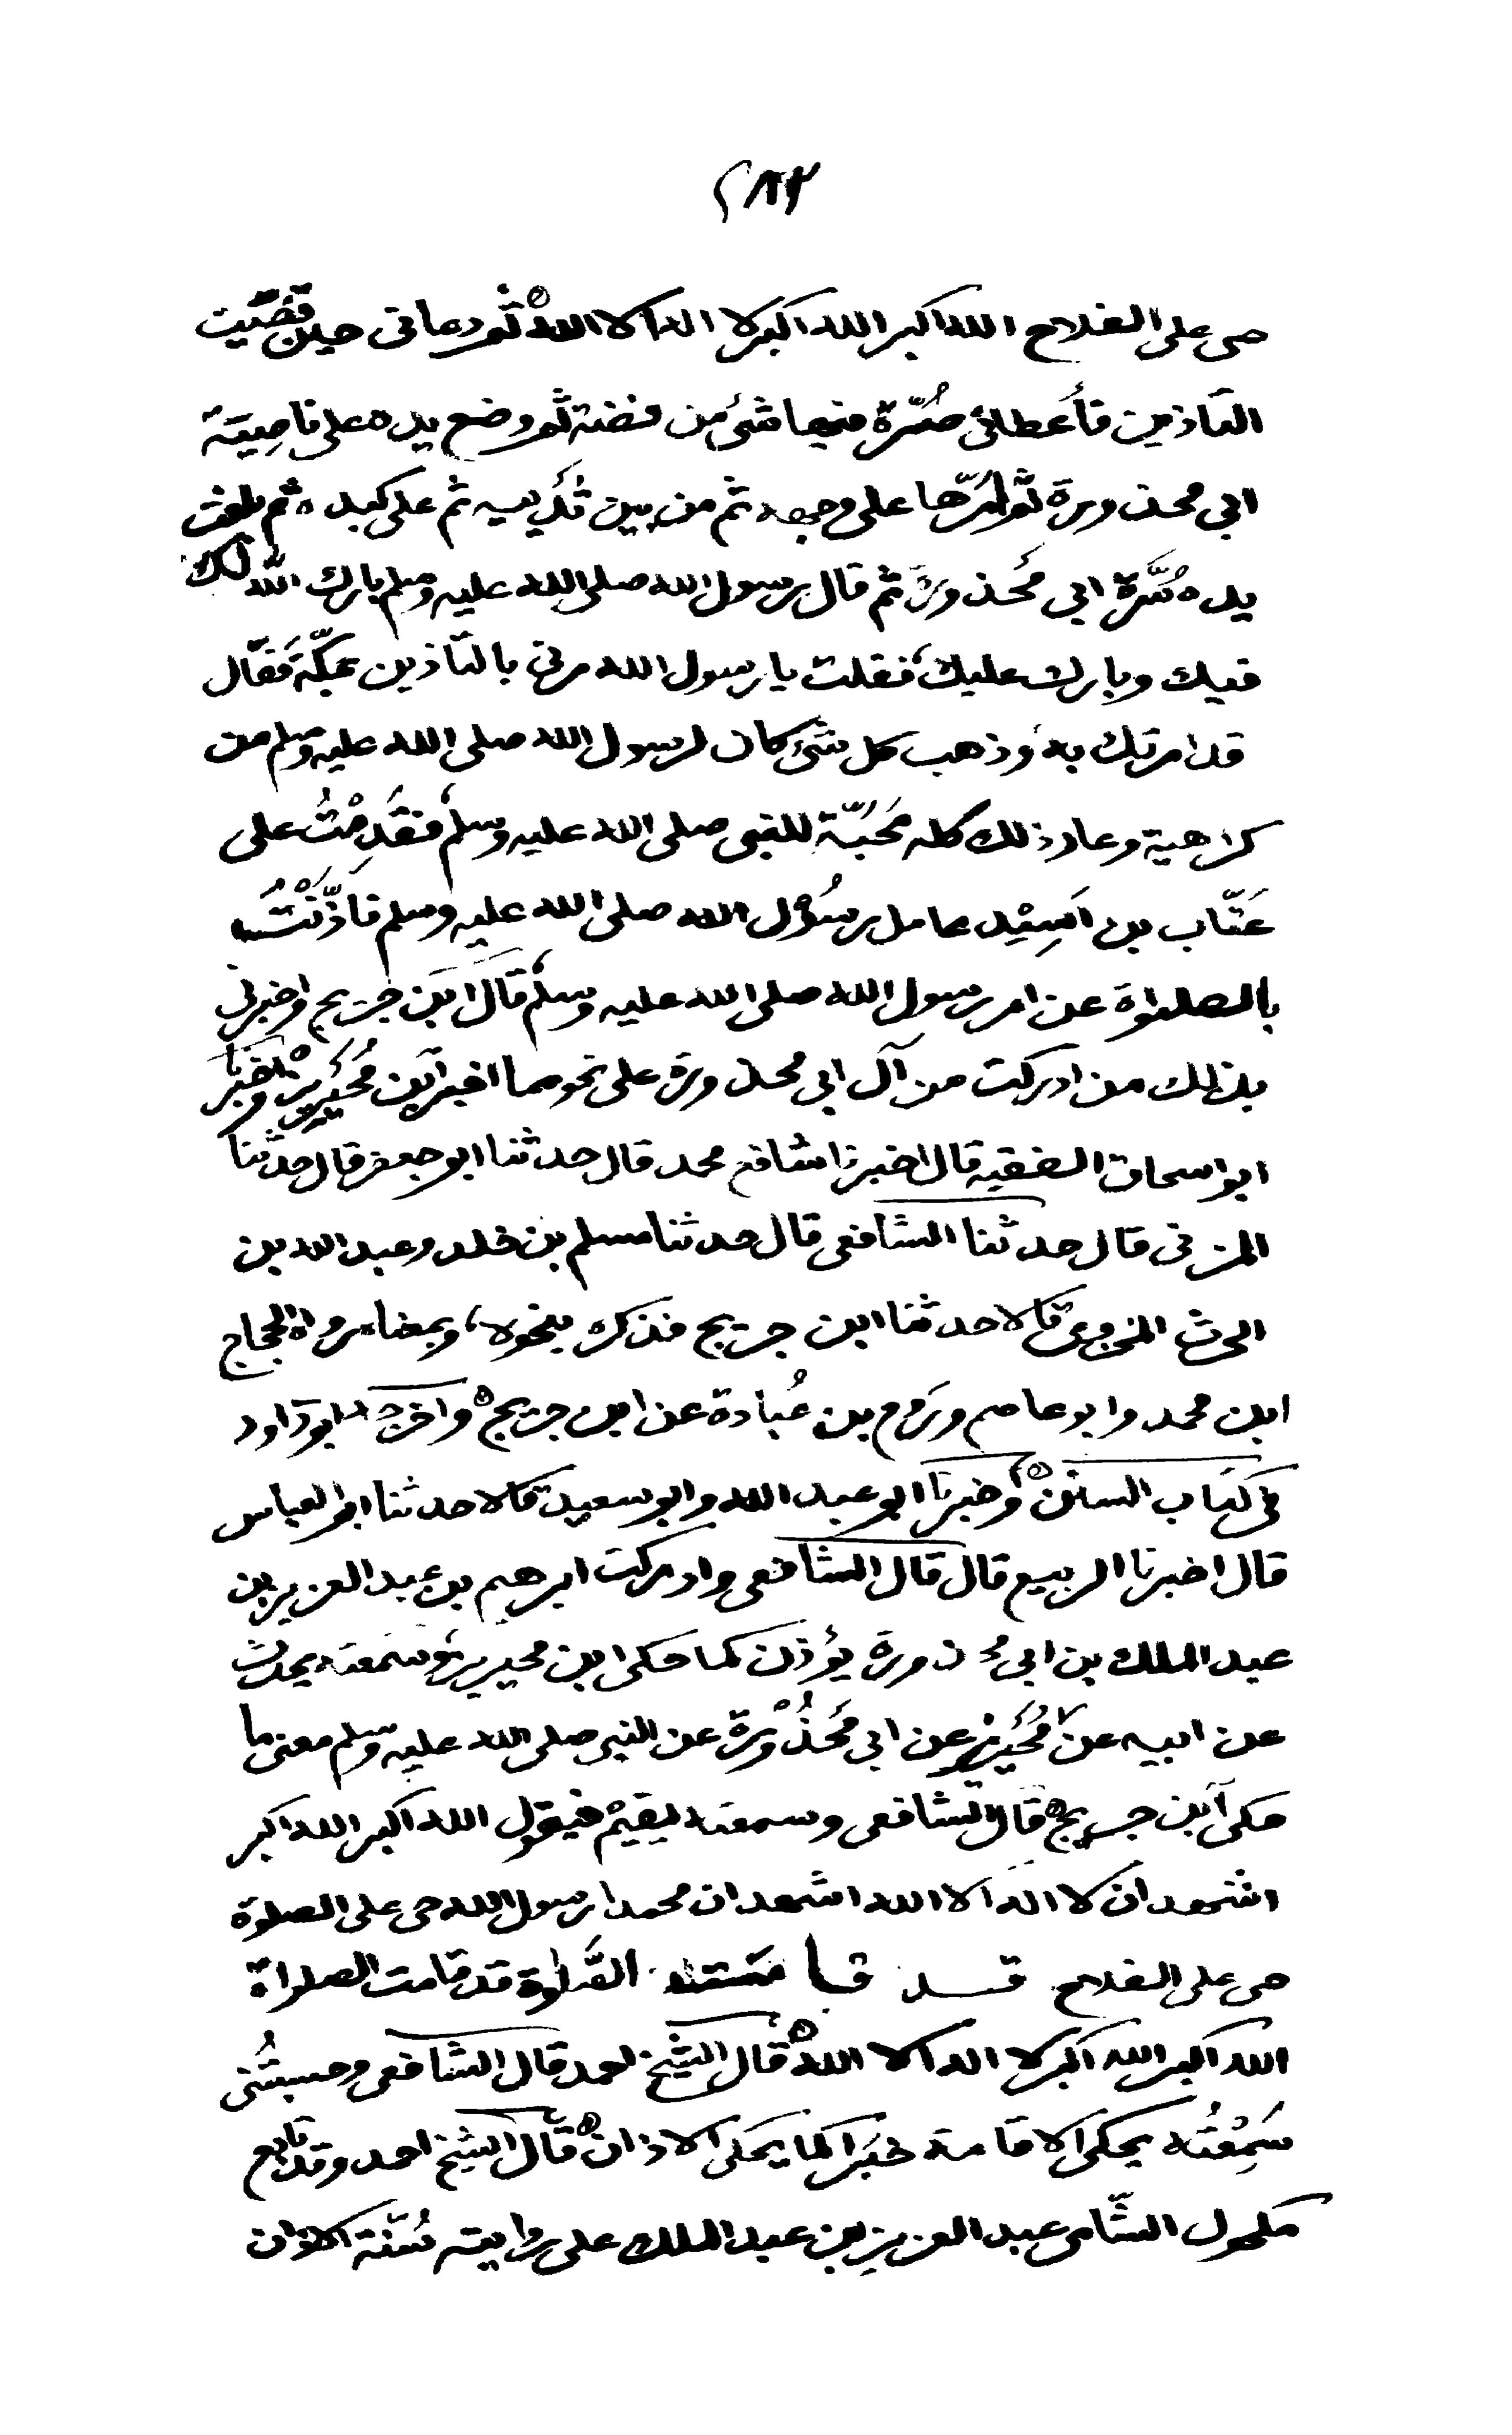 ٢٨٣
حى على الفلاح الله اكبر الله اكبر لا اله الا الله ثم دعانى حين قضيت
التاذين فأعطانى صُرّة فيها شىء من فضة ثم وضع يده على ناصِيَة
ابى محذورة ثم امَرّها على وجهه ثم من بين ثَديَيه ثم على كبده ثم بلغت
يده سُرَّة ابى مَحذورةَ ثم قال رسول الله صلى الله عليه وسلم بارك الله لك
فيك وبارك عليك فقلت يا رسول الله مرنى بالتاذين بمكّة فقال
قد امرتك به وذهب كل شىء كان لرسول الله صلى الله عليه وسلم من
كراهية وعاد ذلك كله مَحَبّة للنبى صلى الله عليه وسلم فقَدِمْتُ على
عَتّاب بن اَسِيْد عامل رسُوْل الله صلى الله عليه وسلم فاَذَّنْتُ
بالصلوٰة عن امر رسول الله صلى الله عليه وسلم قال ابن جريج واخبرنى
بذلك من ادركت من آل ابى محذورة على نحو مما اخبر ابن مُحَيْرِيزْ واخبرنا
ابو اسحاق الفقيه قال اخبرنا شافع محمد قال حدثنا ابو جعفر قال حدثنا
المزنى قال حدثنا الشافعى قال حدثنا مسلم بن خلد وعبد الله بن
الحرث المخزومى قالا حدثنا ابن جريج فذكره بنحوه وبمعناه رواه الحجاج
ابن محمد وابو عاصم ورَوح بن عُبادة عن ابن جريج واخرجه ابو داود
فى كتاب السنن واخبرنا ابو عبد الله وابو سعيد قالا حدثنا ابو العباس
قال اخبرنا الربيع قال قال الشافعى وادركت ابرهيم بن عبد العزيز بن
عبد الملك بن ابى محذورة يؤذن كما حكى ابن محيريز وسمعته يحدث
عن ابيه عن مُحَيْريز عن ابى مَحْذُوْرة عن النبى صلى الله عليه وسلم معنى ما
حكى ابن جريج قال الشافعى وسمعته يقيمْ فيقول الله اكبر الله اكبر
اشهد ان لا اله الا الله اشهد ان محمدا رسول الله حى على الصلوة
حى على الفلاح قد قامت الصَّلوة قد قامت الصلوٰة
الله اكبر الله اكبر لا اله الا الله قال الشيخ احمد قال الشافعى وحسبتُنى
سَمِعْتُه يحكى الاقامة خبَرا كما يحكى الاذان قال الشيخ احمد وقد تابع
مكحول الشّامى عبد العزيز بن عبد الملك على روايته سُنّة الاذان